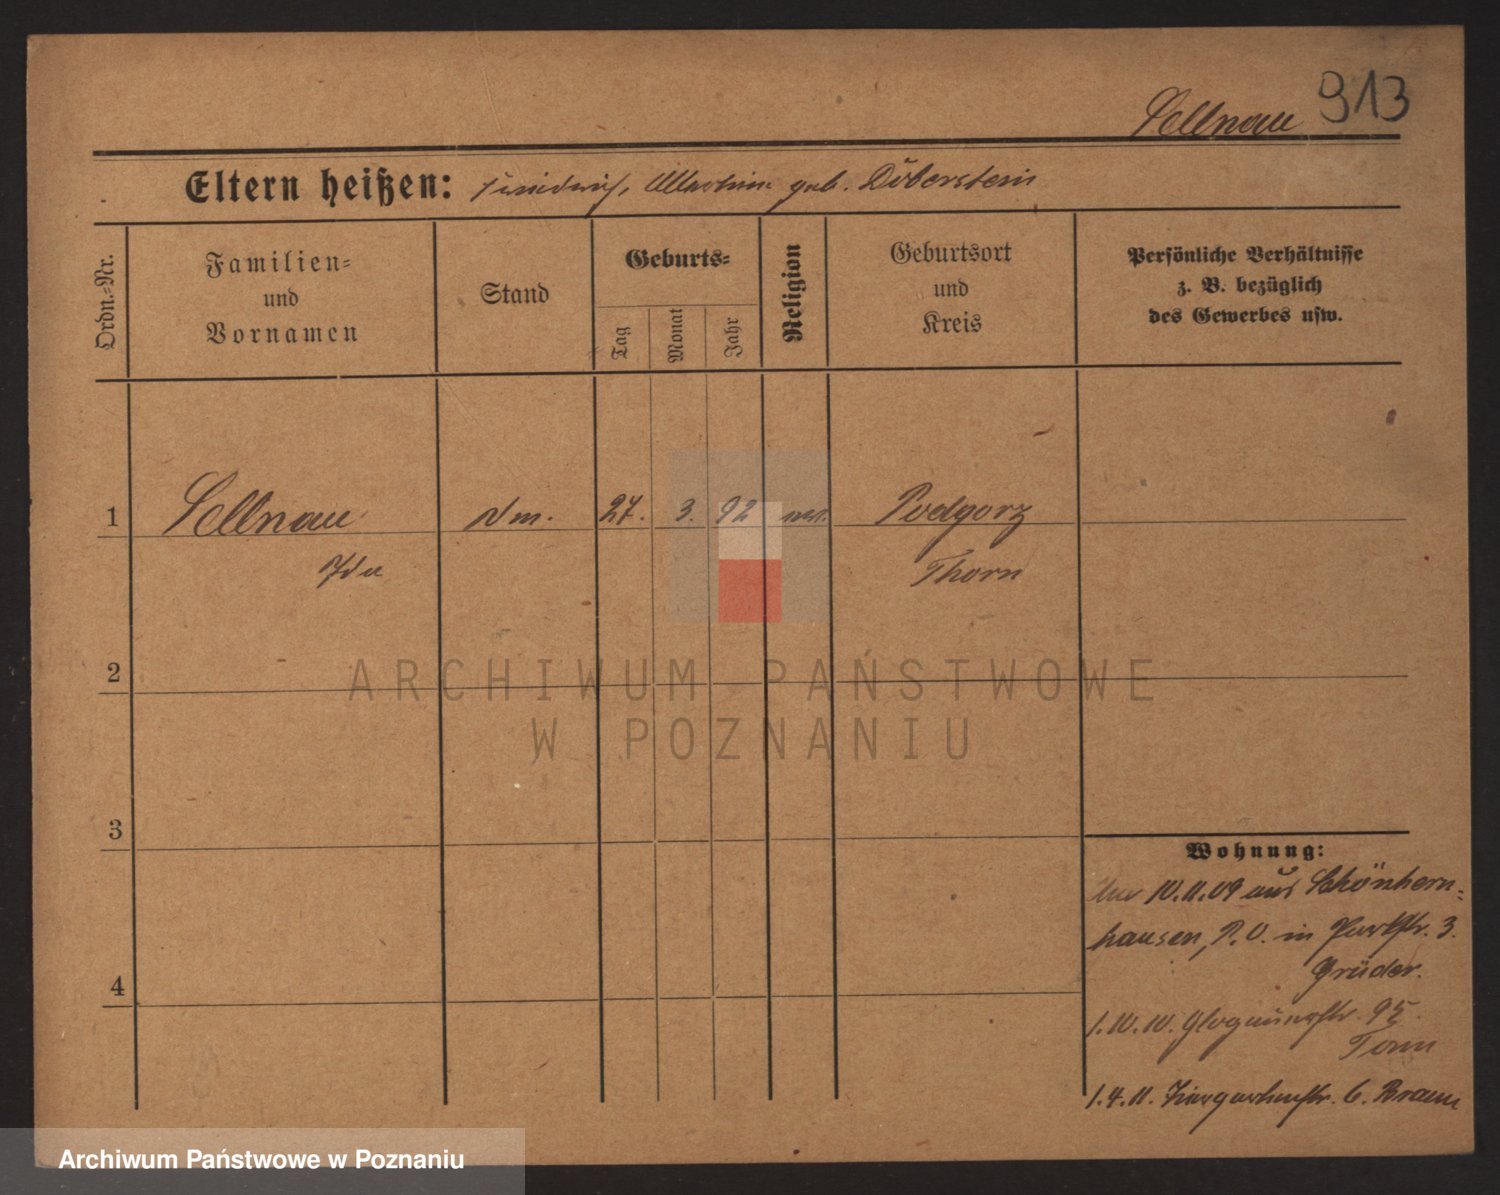 Sellnau 913
Eltern heißen: geb. Döberstein
Ordn.-Nr.
Familien-
und
Vornamen
Stand
Geburts-
Tag
Monat
Jahr
Religion
Geburtsort
und
Kreis
Persönliche Verhältnisse
z. B. bezüglich
des Gewerbes usw.
1 Sellnau 27. 3. 92 Podgorz
Ida Thorn
2
3
4
Wohnung:
10.11.09 aus Schönhern-
hausen, P. O. in Parkstr. 3.
Grüder.
1.10.10. Glogauerstr. 95.
1.4.11. Tiergartenstr. 6. Braun
ARCHIWUM PAŃSTWOWE
W POZNANIU
Archiwum Państwowe w Poznaniu